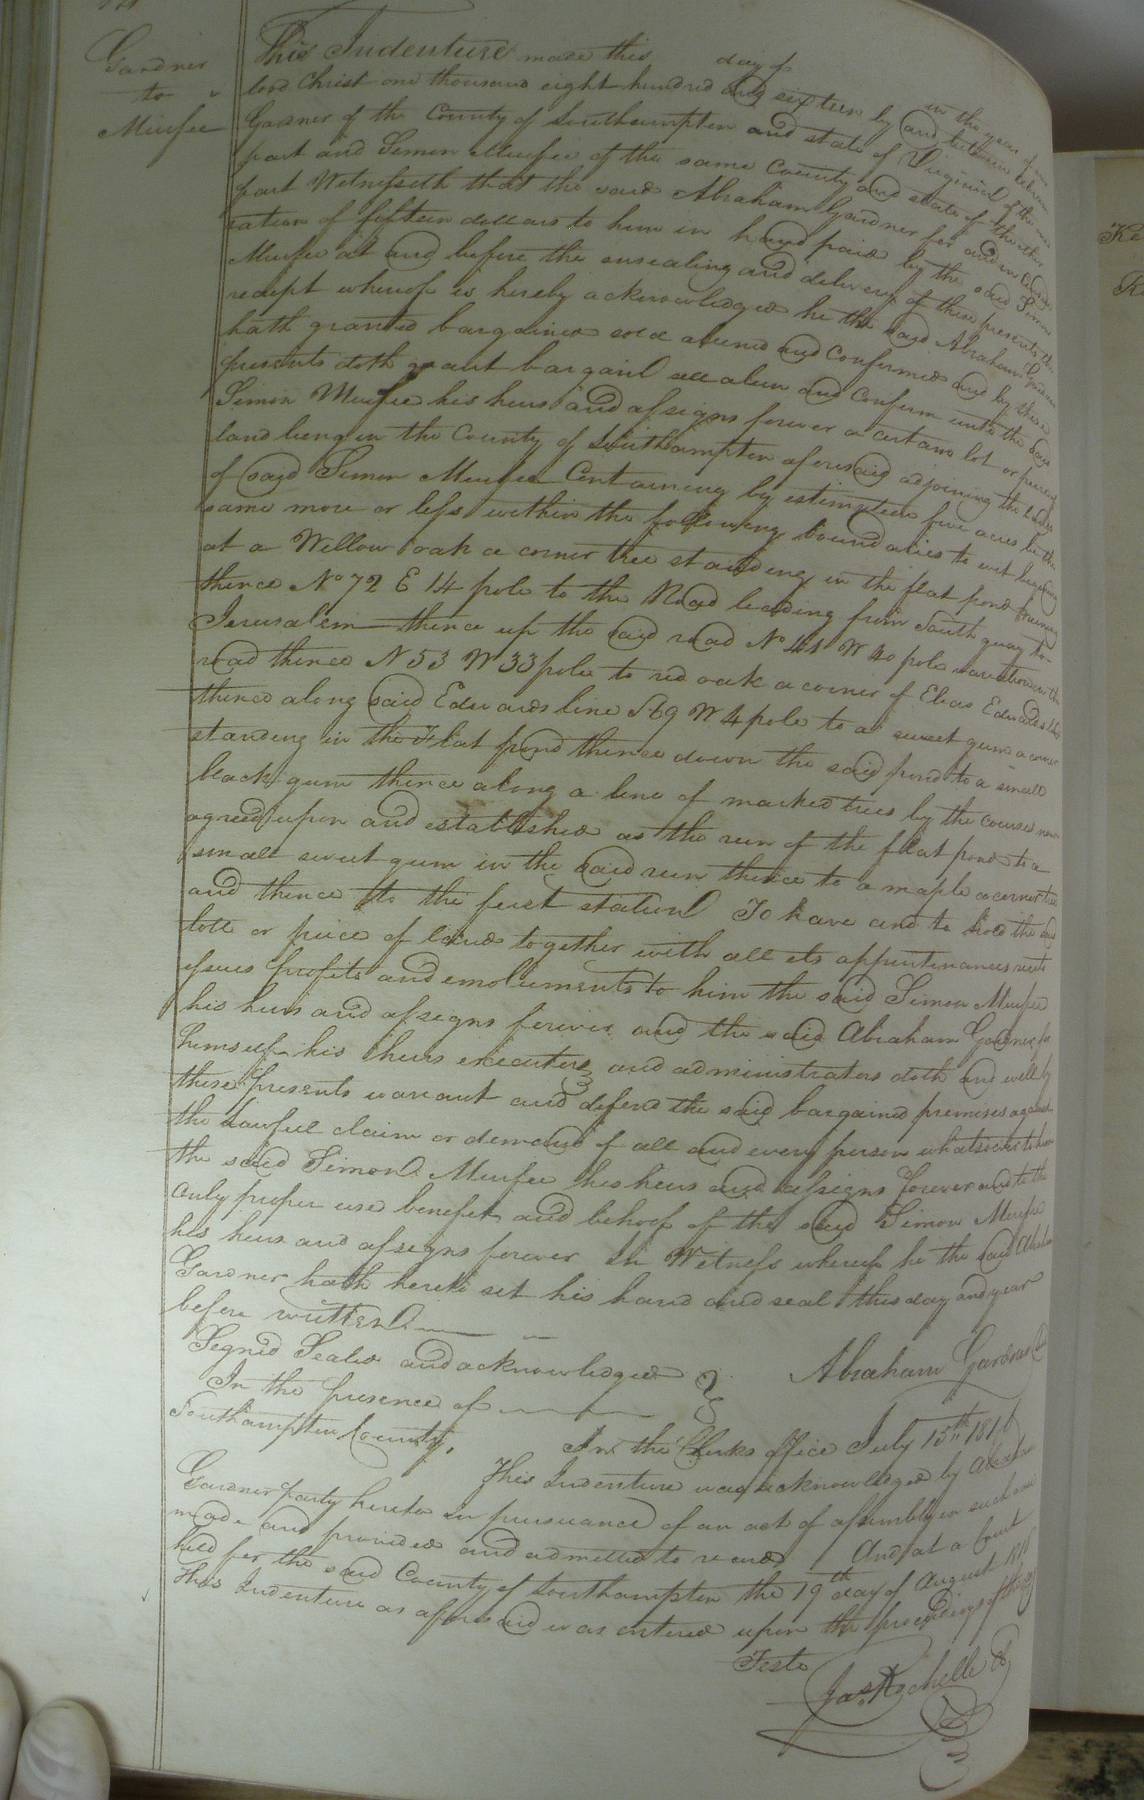 Gardner
to
Murfee
This Indenture made this day of in the year of our
lord Christ one thousand eight hundred and sixteen by and between Abram
Gardner of the County of Southampton and state of Virginia of the one
part and Simon Murfee of the same County and state of the other
part Witnesseth that the said Abraham Gardner for and in Consid
eration of fifteen dollars to him in hand paid by the said Simon
Murfee at and before the ensealing and delivery of these presents the
receipt whereof is hereby acknowledged he the said Abraham Gardner
hath granted bargained sold aliened and Confirmed and by these
presents doth grant bargain sell alien and Confirm unto the said
Simon Murfee his heirs and assigns forever a certain lot or parcel
land lieng in the County of Southampton aforesaid adjoining the lands
of said Simon Murfee Containing by estimation five acres be the
same more or less within the following boundaries to wit begining
at a Willow oak a corner tree standing in the flat pond running
thence No 72 E 14 pole to the Road leading from South quay to
Jerusalem thence up the said road No 41 W 20 pole the
road thence N 53 W 33 pole to red oak a corner of Elias Edwards
thence along said Edwards line S 69 W 4 pole to a sweet gum a corner
standing in the Flat pond thence down the said pond to a small
black gum thence along a line of marked trees by the courses now
agreed upon and established as the run of the flat pond to a
small sweet gum in the said run thence to a maple a corner tree
and thence to the first station To have and to hold the said
lott or piece of land together with all its appurtinances rents
issues profits and emoluments to him the said Simon Murfee
his heirs and assigns forever and the said Abraham Gardner for
himself his heirs executors and administrators doth and will by
these presents warrant and defend the said bargained premises against
the lawfull claim or demand of all and every person whatsoever to him
the said Simon Murfee his heirs and assigns forever and to the
only proper use benefit and behoof of the said Simon Murfee
his heirs and assigns forever In Witness whereof he the said Abraham
Gardner hath hereto set his hand and seal this day and year
before written
Signed Sealed and acknowledged
In the presence of
Abraham Gardner
Southampton County,
In the Clerks office July 15th 1816
This Indenture was acknowledged by Abraham
Gardner party hereto in pursuance of an act of assembly in such case
made and provided and admitted to record And at a Court
held for the said County of Southampton the 19th day of August 1816
This Indenture as aforesaid was entered upon the proceedings of the
Teste
Jas. Rochelle